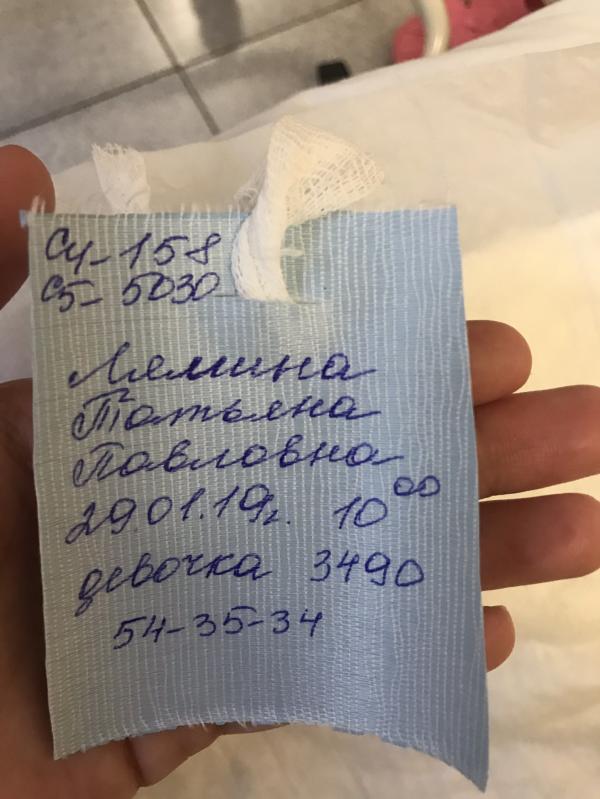 с4-158
с5-5030
Лямина
Татьяна
Павловна
29.01.19г. 10⁰⁰
девочка 3490
54-35-34